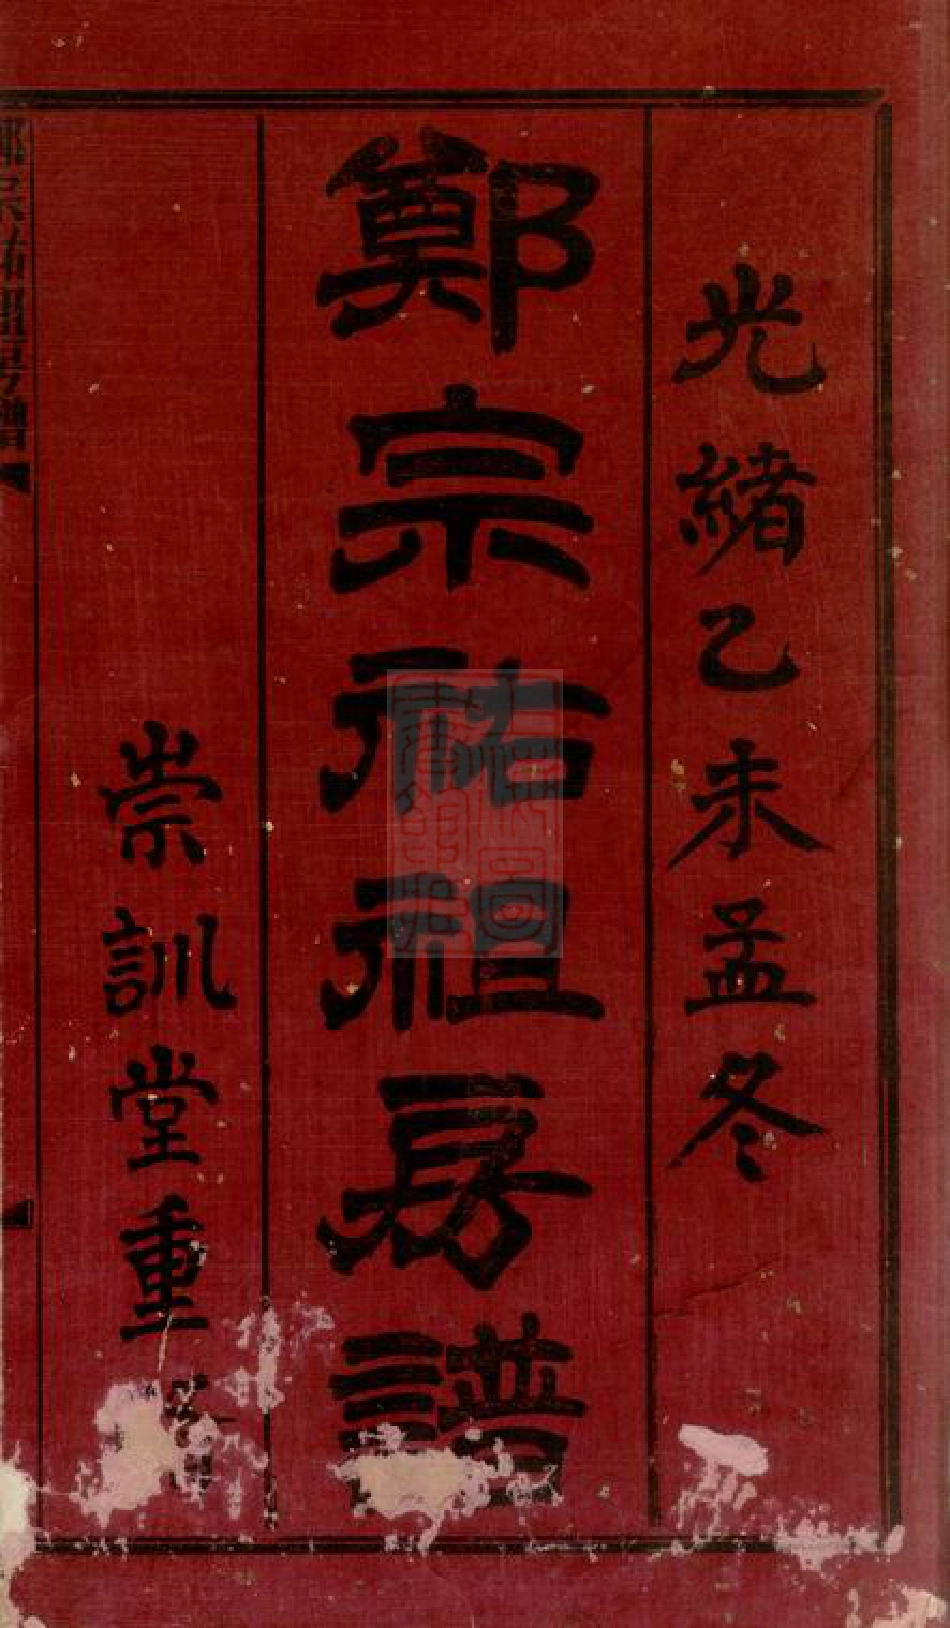 光緒乙未孟冬
鄭宗祐祖房譜
崇訓堂重
鄭宗祐祖房譜